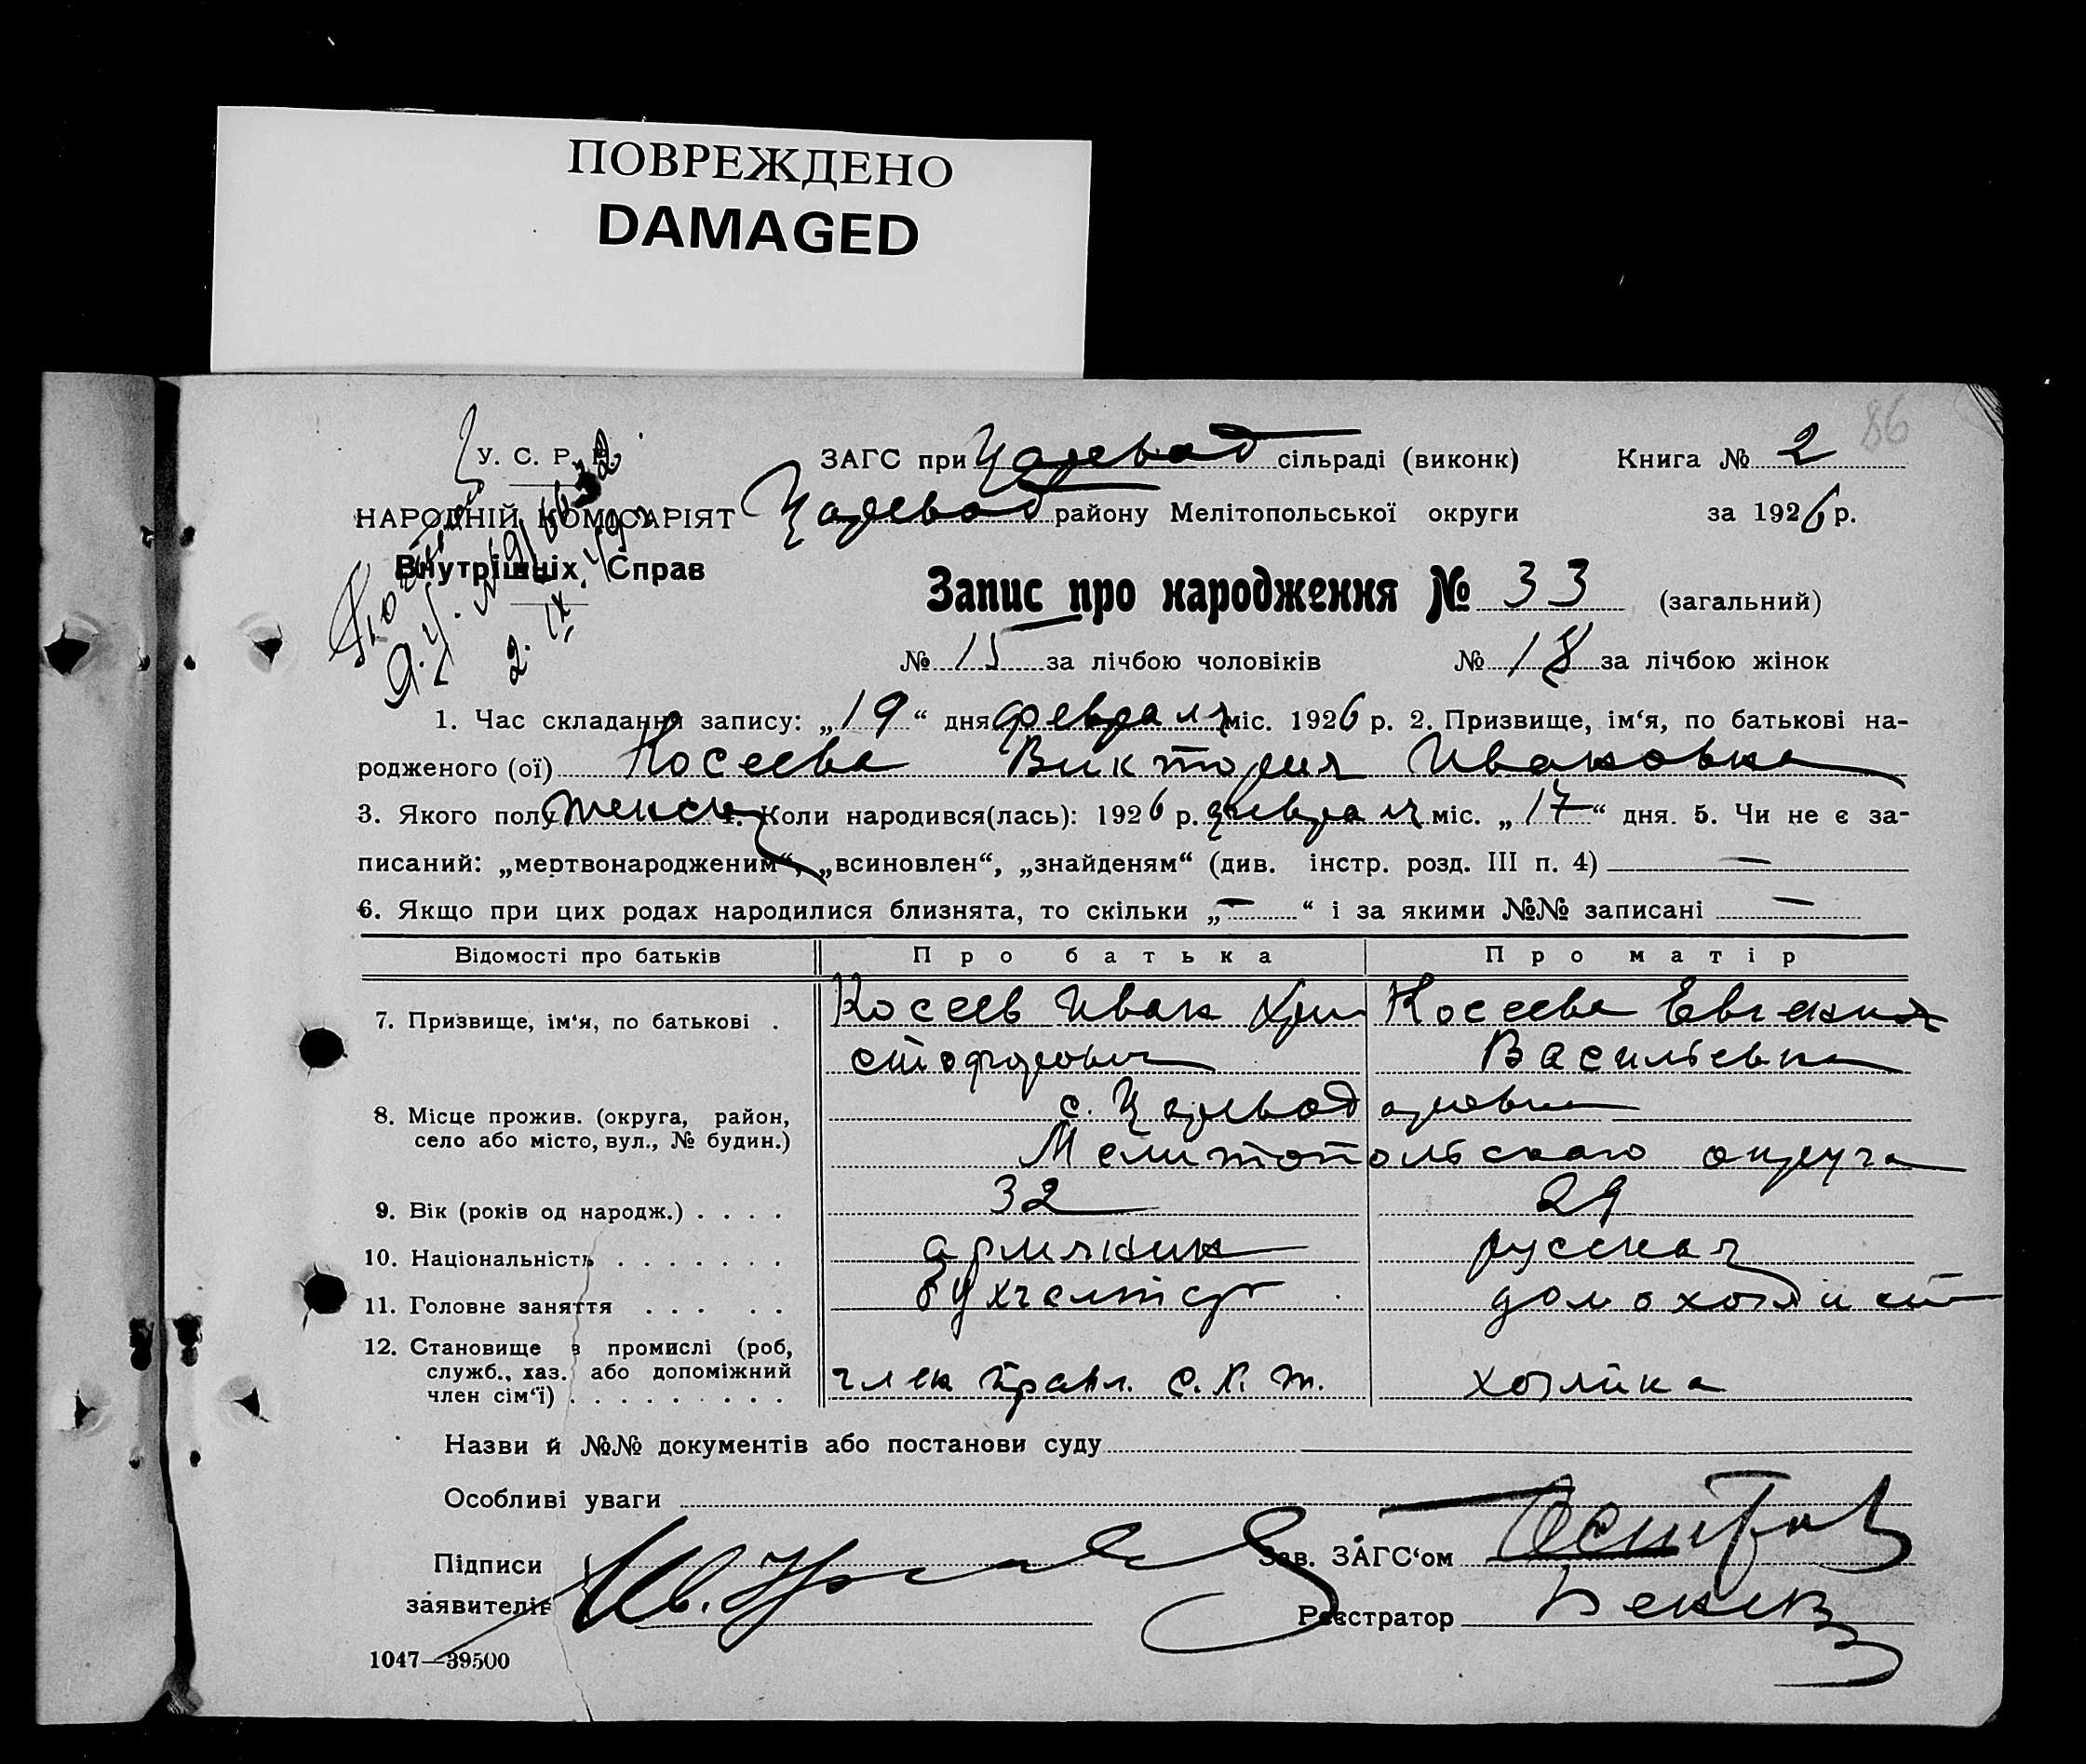 ПОВРЕЖДЕНО
DAMAGED
86
У. С. Р. Р.
НАРОДНІЙ КОМІСАРІЯТ
Внутрішніх Справ
2. IX.
ЗАГС при Царевод сільраді (виконк) Книга № 2
Царевод району Мелітопольської округи за 1926 р.
Запис про народження № 33 (загальний)
№ 15 за лічбою чоловіків № 18 за лічбою жінок
1. Час складання запису: „19“ дня февраля міс. 1926 р. 2. Призвище, ім‘я, по батькові на-
родженого (ої) Косеева Виктория Ивановна
3. Якого полу женск 4. Коли народився(лась): 1926 р. февраля міс. „17“ дня. 5. Чи не є за-
писаний: „мертвонародженим“, „всиновлен“, „знайденям“ (див. інстр. розд. III п. 4) —
6. Якщо при цих родах народилися близнята, то скільки „—“ і за якими №№ записані —
Відомості про батьків Про батька Про матір
7. Призвище, ім‘я, по батькові . Косеев Иван Хри Косеева Евгения
стофорович Васильевна
8. Місце прожив. (округа, район, с. Царевод аровка
село або місто, вул., № будин.) Мелитопольского округа
9. Вік (років од народж.) . . . . 32 29
10. Національність . . . . . . . армянин русская
11. Головне заняття . . . . . бухгалтер домохозяйст
12. Становище в промислі (роб,
служб., хаз. або допоміжний член правл. С. К. Т. хозяйка
член сім‘ї) . . . . . . . . .
Назви й №№ документів або постанови суду
Особливі уваги
Підписи Ив. Зав. ЗАГС‘ом
заявителів Реєстратор
1047—39500